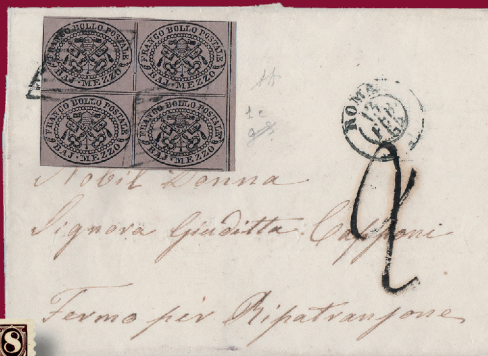 FRANCO BOLLO POSTALE
BAI-MEZZO
FRANCO BOLLO POSTALE
BAI-MEZZO
FRANCO BOLLO POSTALE
BAI-MEZZO
FRANCO BOLLO POSTALE
BAI-MEZZO
ROMA
FEB
2
Nobil Donna
Signora Giuditta Capponi
Fermo per Ripatransone
8